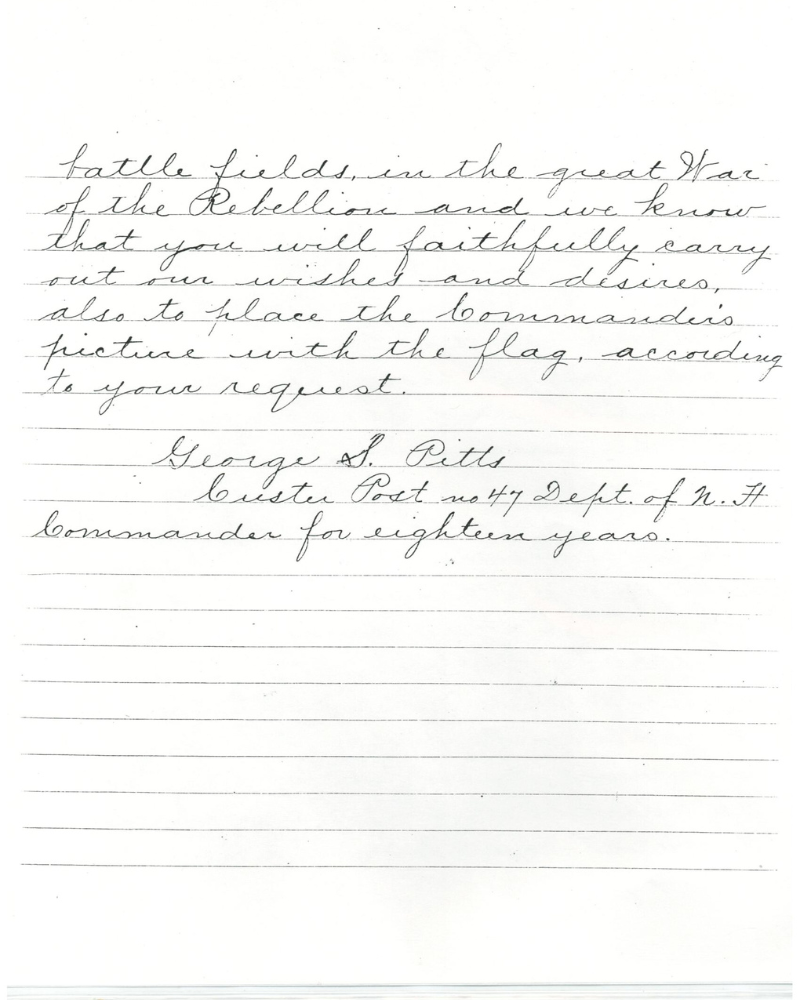 battle fields, in the great War
of the Rebellion and we know
that you will faithfully carry
out our wishes and desires,
also to place the Commander's
picture with the flag, according
to your request.
George S. Pitts
Custer Post no 47 Dept. of N. H
Commander for eighteen years.